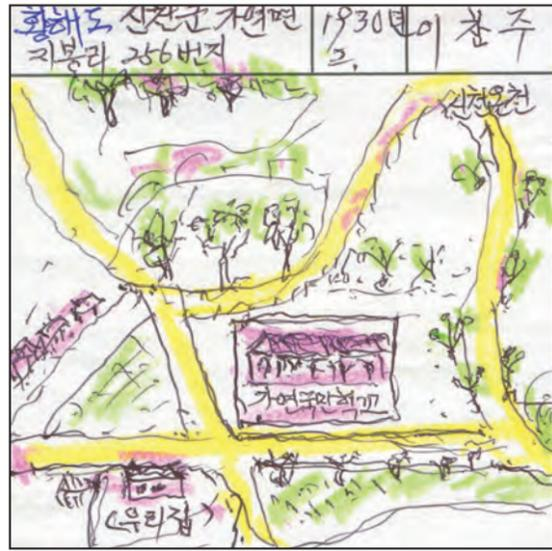 황해도 신천군 가연면
지봉리 256번지
1930년
2.
이 찬 주
신천온천
가연국민학교
(우리집)